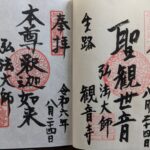 奉拝
本尊釈迦如来
弘法大師
令和六年
八月二十四日
八月二十四日
聖観世音
弘法大師
生路
観音寺